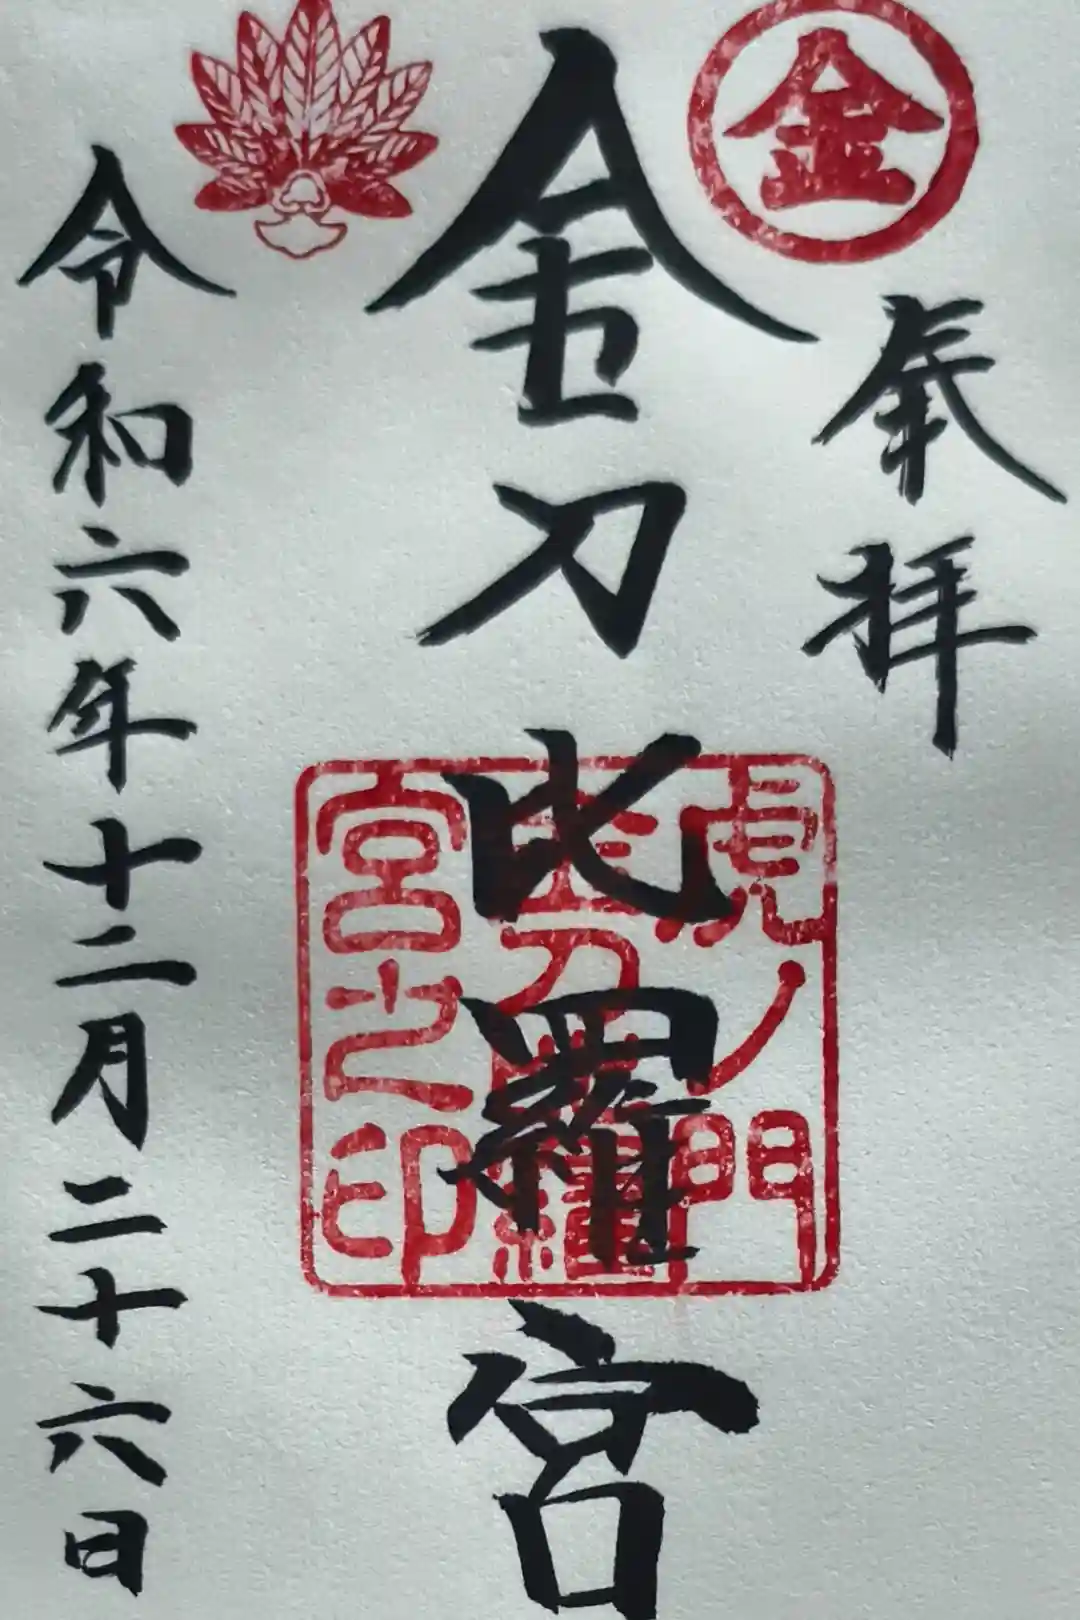 金
奉拝
金刀比羅宮
虎ノ門
金刀比羅
宮之印
令和六年十二月二十六日